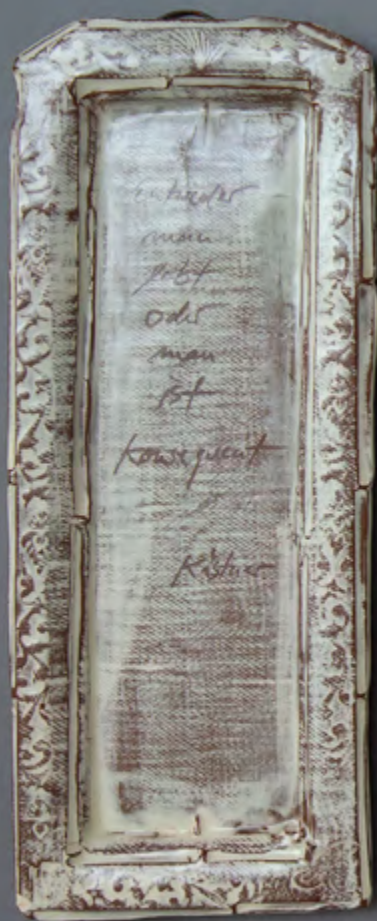 entweder
man
lebt
oder
man
ist
konsequent
Kästner